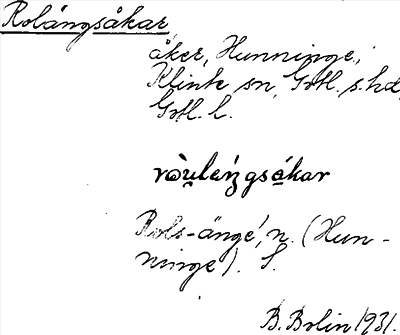 Rolängsåkar
åker, Hunninge,
Klinte sn, Gotl. s. hd,
Gotl. l.
ròu̯lεŋgsǻkar
Rols-änge, n. (Hun-
ninge). S.
B. Bolin 1931.